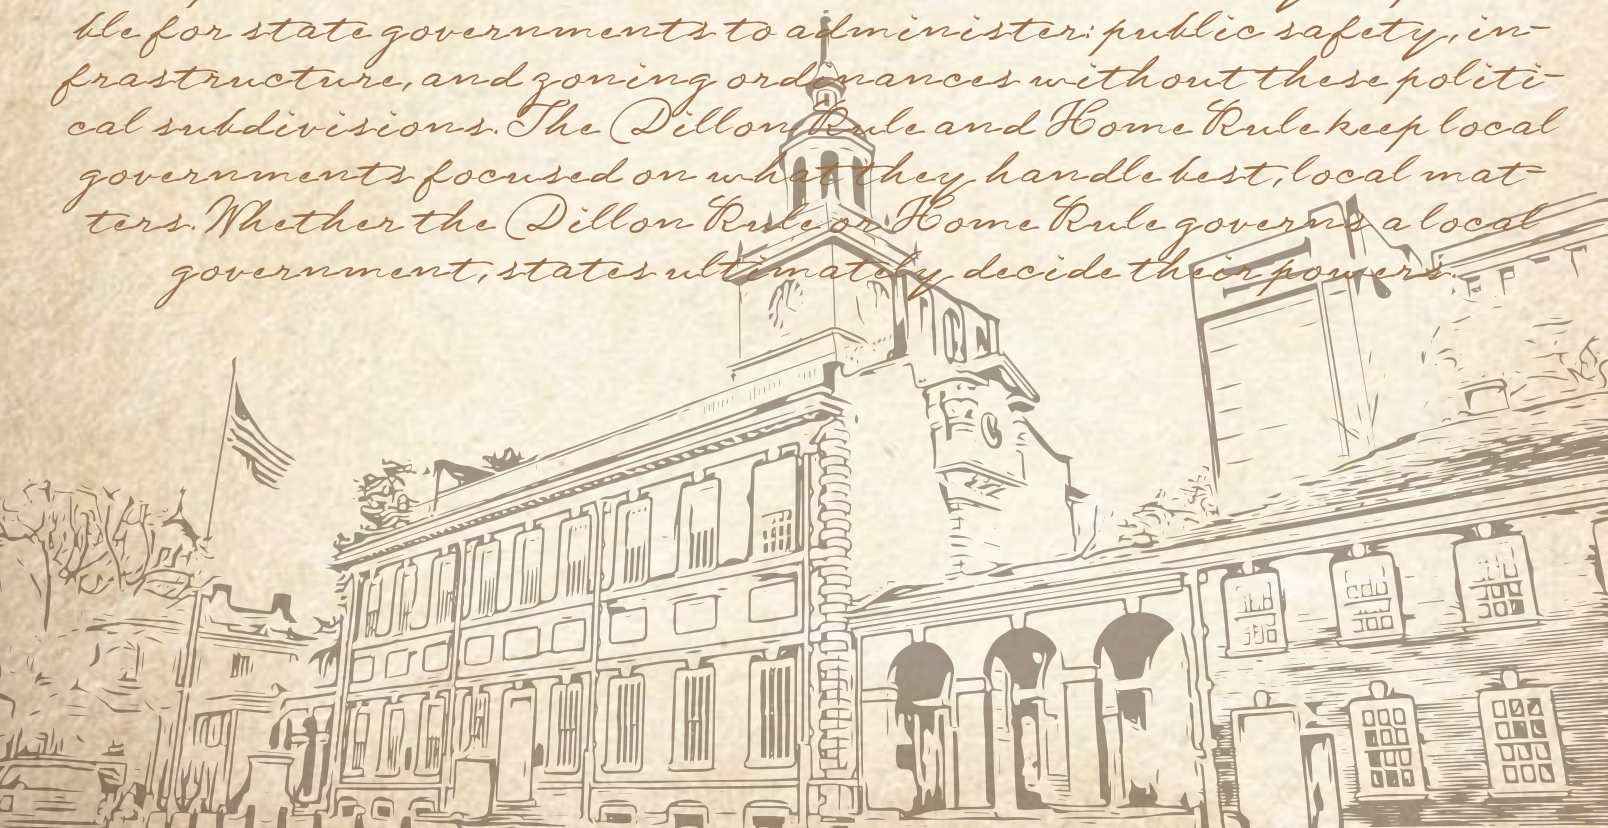 ble for state governments to administer: public safety, in-
frastructure, and zoning ordinances without these politi-
cal subdivisions. The Dillon Rule and Home Rule keep local
governments focused on what they handle best, local mat-
ters. Whether the Dillon Rule or Home Rule governs a local
government, states ultimately decide their powers.